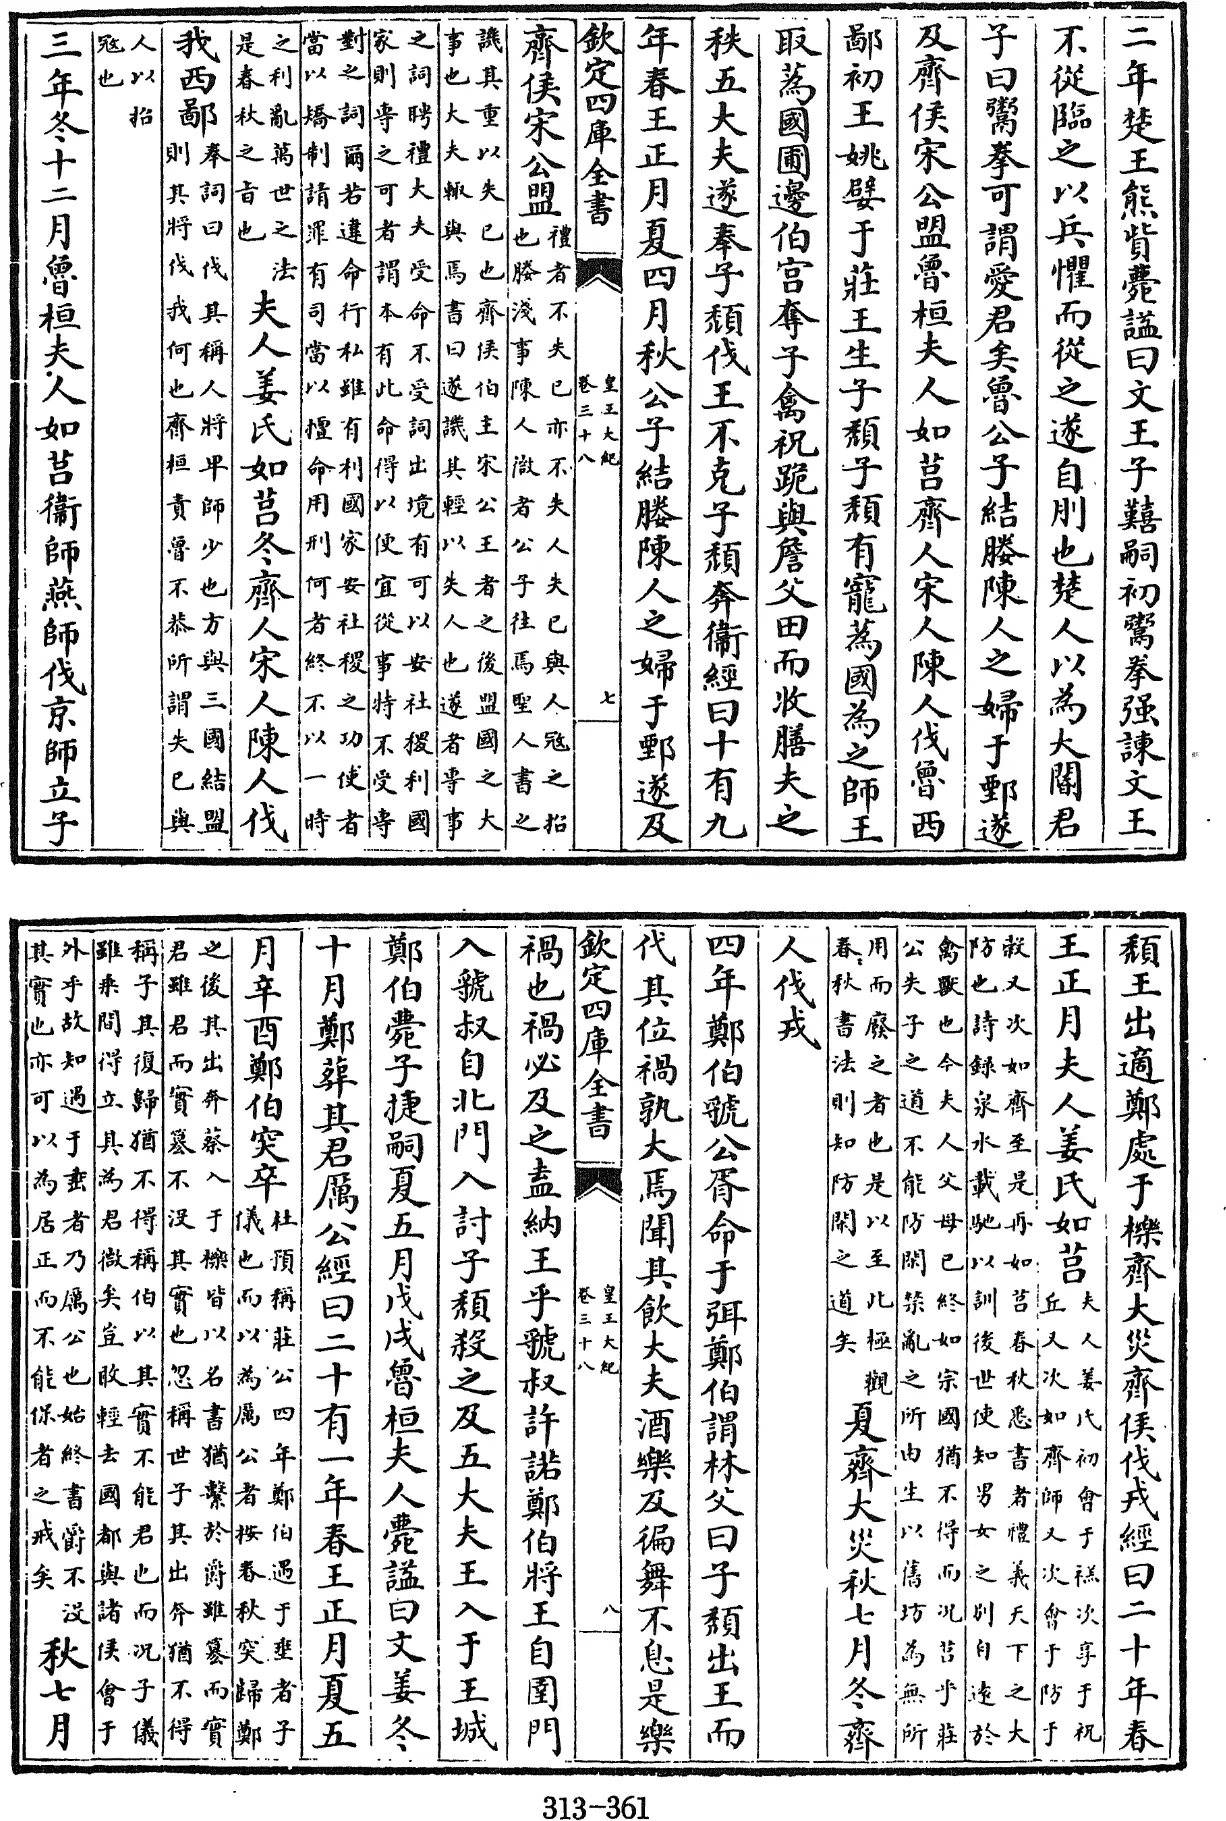 二年楚王熊貲薨謚曰文王子囏嗣初鬻拳强諫文王
不從臨之以兵懼而從之遂自刖也楚人以為大閽君
子曰鬻拳可謂愛君矣魯公子結媵陳人之婦于鄄遂
及齊侯宋公盟魯桓夫人如莒齊人宋人陳人伐魯西
鄙初王姚嬖于莊王生子頽子頽有寵蒍國為之師王
取蒍國圃邊伯宫奪子禽祝跪與詹父田而收膳夫之
秩五大夫遂奉子頽伐王不克子頽奔衞經曰十有九
年春王正月夏四月秋公子結媵陳人之婦于鄄遂及
欽定四庫全書
皇王大紀
卷三十八
七
齊侯宋公盟
禮者不失已亦不失人失已與人冦之招
也媵淺事陳人㣲者公子往焉聖人書之
譏其重以失已也齊侯伯主宋公王者之後盟國之大
事也大夫輒與焉書曰遂譏其輕以失人也遂者專事
之詞聘禮大夫受命不受詞出境有可以安社稷利國
家則專之可者謂本有此命得以便宜從事特不受專
對之詞爾若違命行私雖有利國家安社稷之功使者
當以矯制請罪有司當以擅命用刑何者終不以一時
之利亂萬世之法
是春秋之㫖也
夫人姜氏如莒冬齊人宋人陳人伐
我西鄙
奉詞曰伐其稱人將卑師少也方與三國結盟
則其將伐我何也齊桓責魯不恭所謂失已與
人以招
冦也
三年冬十二月魯桓夫人如莒衞師燕師伐京師立子
頽王出適鄭處于櫟齊大災齊侯伐戎經曰二十年春
王正月夫人姜氏如莒
夫人姜氏初會于禚次享于祝
丘又次如齊師又次會于防于
穀又次如齊至是再如莒春秋悉書者禮義天下之大
防也詩録泉水載馳以訓後世使知男女之别自遠於
禽獸也今夫人父母已終如宗國猶不得而况莒乎莊
公失子之道不能防閑禁亂之所由生以舊坊為無所
用而廢之者也是以至此極觀
春秋書法則知防閑之道矣
夏齊大災秋七月冬齊
人伐戎
四年鄭伯虢公胥命于弭鄭伯謂林父曰子頽出王而
代其位禍孰大焉聞其飲大夫酒樂及徧舞不息是樂
欽定四庫全書
皇王大紀
卷三十八
八
禍也禍必及之盍納王乎虢叔許諾鄭伯將王自圉門
入虢叔自北門入討子頽殺之及五大夫王入于王城
鄭伯薨子捷嗣夏五月戊戌魯桓夫人薨謚曰文姜冬
十月鄭葬其君厲公經曰二十有一年春王正月夏五
月辛酉鄭伯突卒
杜預稱莊公四年鄭伯遇于垂者子
儀也而以為厲公者按春秋突歸鄭
之後其出奔蔡入于櫟皆以名書猶繫於爵雖簒而實
君雖君而實簒不没其實也忽稱世子其出奔猶不得
稱子其復歸猶不得稱伯以其實不能君也而况子儀
雖乘間得立其為君㣲矣豈敢輕去國都與諸侯會于
外乎故知遇于垂者乃厲公也始終書爵不没
其實也亦可以為居正而不能保者之戒矣
秋七月
313-361